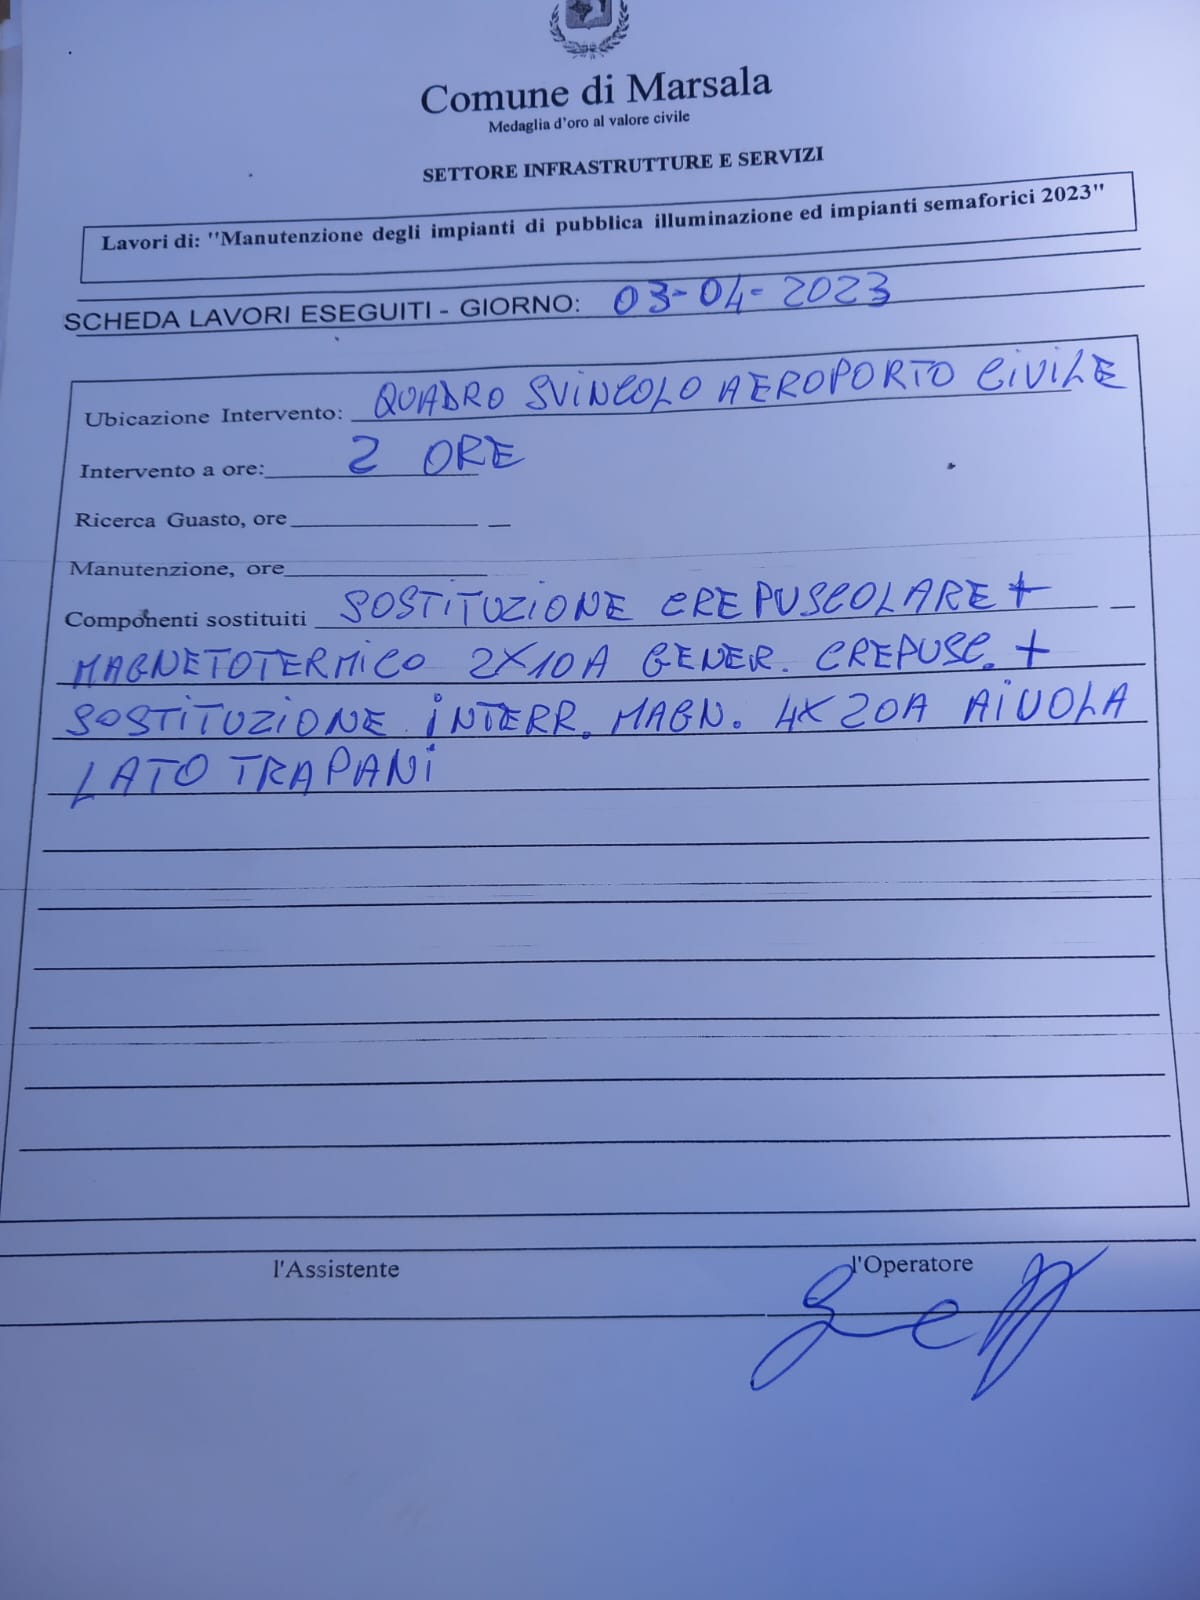 Comune di Marsala
Medaglia d'oro al valore civile
SETTORE INFRASTRUTTURE E SERVIZI
Lavori di: "Manutenzione degli impianti di pubblica illuminazione ed impianti semaforici 2023"
SCHEDA LAVORI ESEGUITI - GIORNO: 03-04-2023
Ubicazione Intervento: QUADRO SVINCOLO AEROPORTO CIVILE
Intervento a ore: 2 ORE
Ricerca Guasto, ore
Manutenzione, ore
Componenti sostituiti SOSTITUZIONE CREPUSCOLARE +
MAGNETOTERMICO 2X10A GENER. CREPUSC. +
SOSTITUZIONE INTERR. MAGN. 4X20A AIUOLA
LATO TRAPANI
l'Assistente l'Operatore